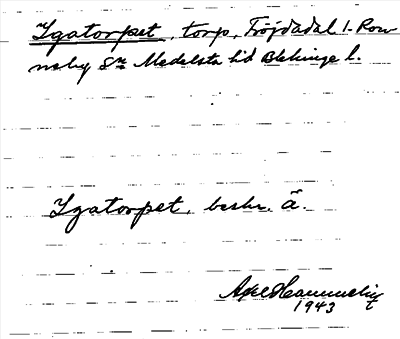 Igatorpet, torp, Fröjdadal 1. Ron
neby sn Medelsta hd Blekinge l.
Igatorpet. beskr. ä.
Axel
1943